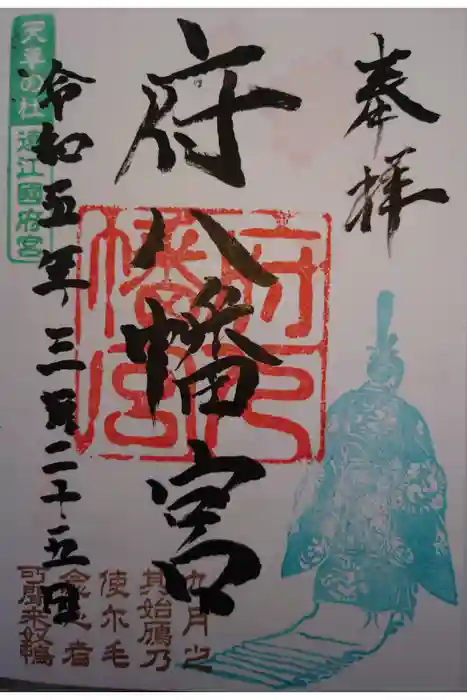 奉拝
府八幡宮
府八
幡宮
九月之
其始鴈乃
使尓毛
念心者
可聞来奴鴨
令和五年三月二十五日
天平の杜
遠江國府宮